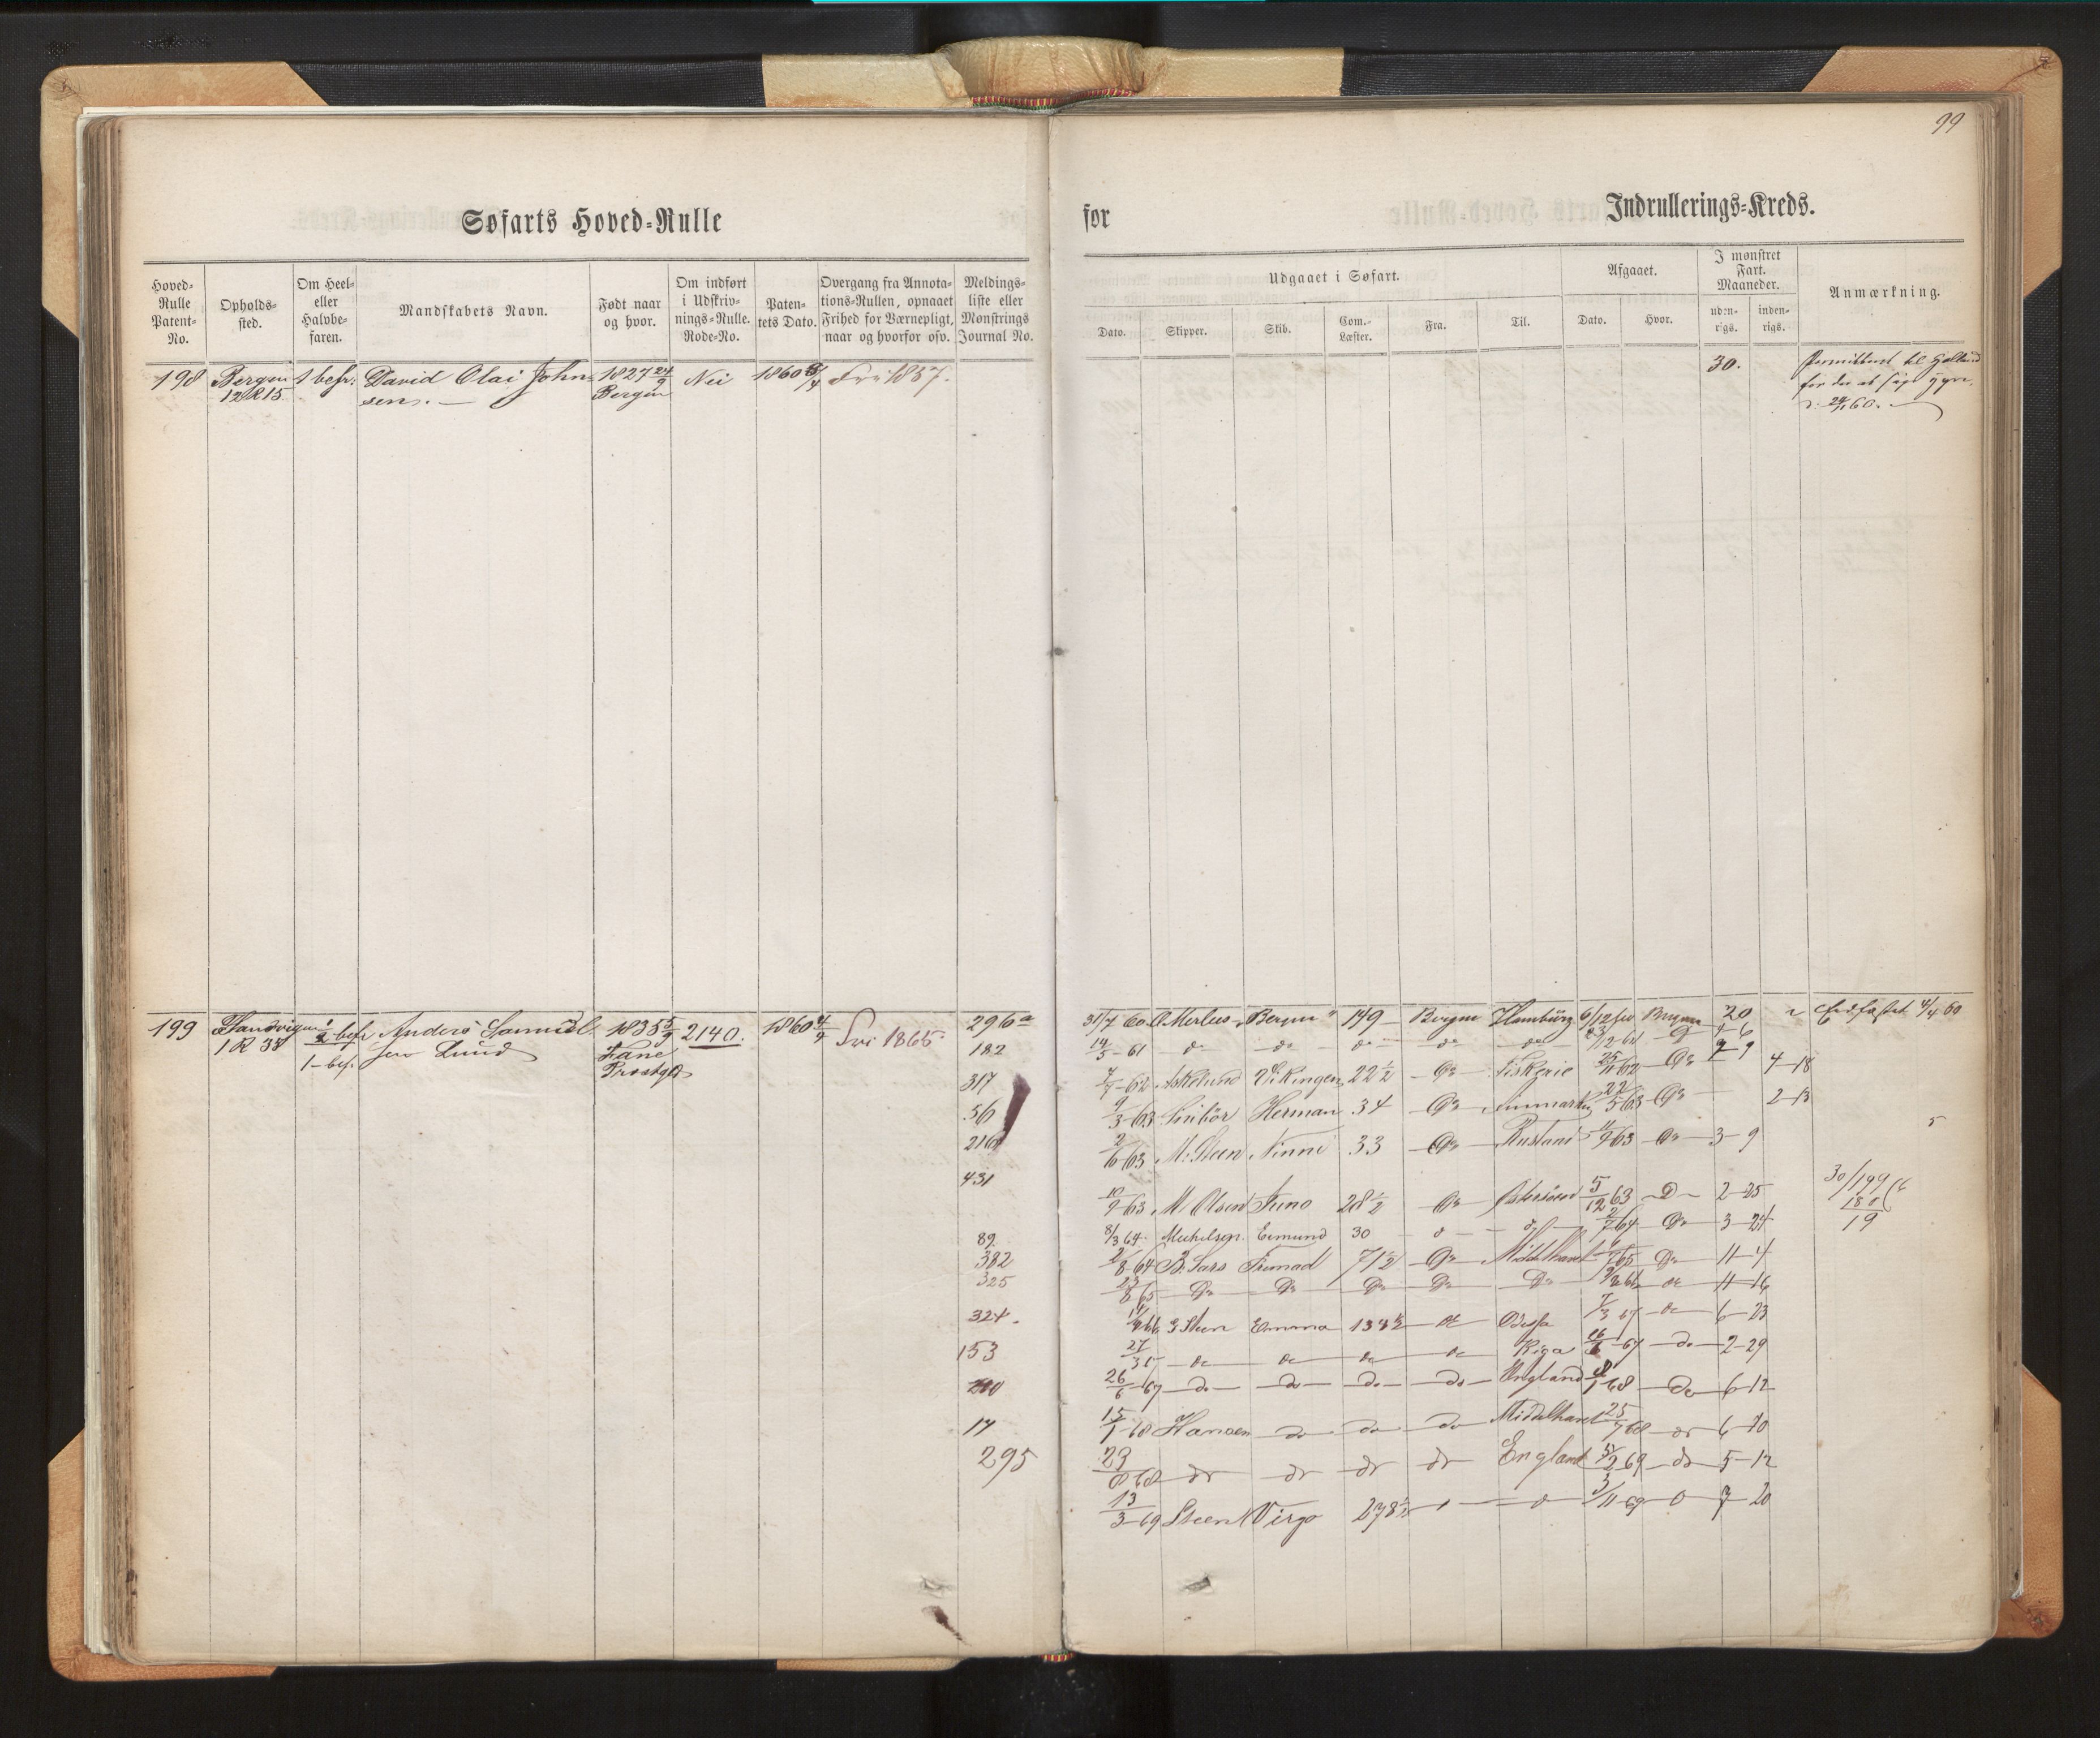 99
Søfarts Hoved=Rulle
for
Indrullerings=Kreds.
Hoved=Rulle Patent=No.
Opholds=sted.
Om Heel= eller Halvbe=faren.
Mandskabets Navn.
Født naar og hvor.
Om indført i Udskriv=nings=Rulle. Rode=No.
Paten=tets Dato.
Overgang fra Annota=tions=Rullen, opnaaet Frihed for Værnepligt, naar og hvorfor osv.
Meldings=liste eller Mønstrings Journal No.
Udgaaet i Søfart.
Afgaaet.
I mønstret Fart. Maaneder.
Anmærkning.
Dato.
Skipper.
Skib.
Com.=Læster.
Fra.
Til.
Dato.
Hvor.
uden=rigs.
inden=rigs.
198 Bergen 1 befr. David Olai John= 1827 24/9 Nei 1860 Fri 1857.
12 R 15 sen. Bergen
30. Permitteret til
24/11 60.
199 Sandvigen 1/2 befr Anders Samuel= 1835 5/9 2140. 1860 4/9 Fri 1865. 296a
1 R 38 1 bef. sen Lund Fane Præstgd
31/7 60 Bergen 149 Bergen Hamburg 6/12 60 Bergen 20 Edfæstet 4/4 60
182 14/5 61 do do do do do
317 7/7 62 Askelund Vikingen 22 1/2 Do Fiskerie 25/11 62 Do 4-18
56 9/3 63 Herman 34 Do Finmarken 22/5 63 Do 2-13
216 2/6 63 M. Steen Ninni 33 Do Rusland 63 Do 3-9
5
431 10/9 63 M. Olsen Juno 28 1/2 Do Østersøen 5/12 63 D 2-25
30/199
180
19
89 8/3 64 Michelsen 30 2/7 64 Do 3-24
382 64 B. Sars 71 1/2 Do Middelhavet 65 Do 11-4
325 23/8 65 Do Do Do Do Do do 11-16
324. 66 Steen Emma do Odessa 7/3 67 do 6-23
153 27/3 67 do do do do Riga 67 do 2-29
210 26/6 67 do do do do England 68 do 6-12
17 15/1 68 Hansen do do do Middelhavet 25/7 68 do 6-10
295 23/8 68 do do do do England 69 do 5-12
13/3 69 Steen Virgo 3/11 69 7-20